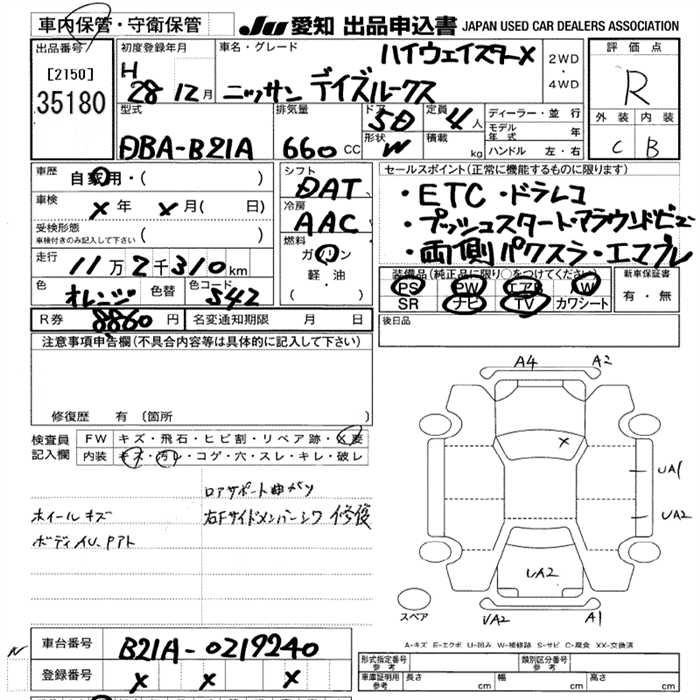 車内保管・守衛保管
JU 愛知 出品申込書 JAPAN USED CAR DEALERS ASSOCIATION
出品番号
[2150]
35180
初度登録年月
H
28年 12月
車名・グレード
ハイウェイスターX
ニッサン デイズルークス
2WD
・
4WD
評価点
R
外装 内装
C B
型式
DBA-B21A
排気量
660 CC
ドア
5D
形状
W
定員
4人
積載
kg
ディーラー・並行
モデル年式 年
ハンドル 左・右
車歴
自家用・( )
車検
X年 X月( 日)
受検形態
車検付きのみ記入して下さい ( )
走行
11万2千310km
色
オレンジ
色替
色コード
S42
シフト
DAT
冷房
AAC
燃料
ガソリン
軽油
( )
セールスポイント(正常に機能するものに限ります)
・ETC・ドラレコ
・プッシュスタート・アラウンドビュー
・両側パワスラ・エマブレ
装備品(純正品に限り○をつけてください)
PS PW エアB W
SR ナビ TV カワシート
新車保証書
有・無
R券 8860円 名変通知期限 月 日
後日品
注意事項申告欄(不具合内容等は具体的に記入して下さい)
修復歴 有(箇所
検査員
記入欄
FW キズ・飛石・ヒビ割・リペア跡・X要
内装 キズ・汚レ・コゲ・穴・スレ・キレ・破レ
ロアサポート曲がり
ホイールキズ
右Fサイドメンバーシワ 修復
ボディイU.Pアト
A4 A2
X
UA1
UA2
UA2
スペア
UA2 A1
A-キズ E-エクボ U-凹み W-補修跡 S-サビ C-腐食 XX-交換済
車台番号
B21A-0219240
登録番号
X X X
N
形式指定番号
参考
類別区分番号
参考
車庫証明用
参考
長さ cm 幅 cm 高さ cm